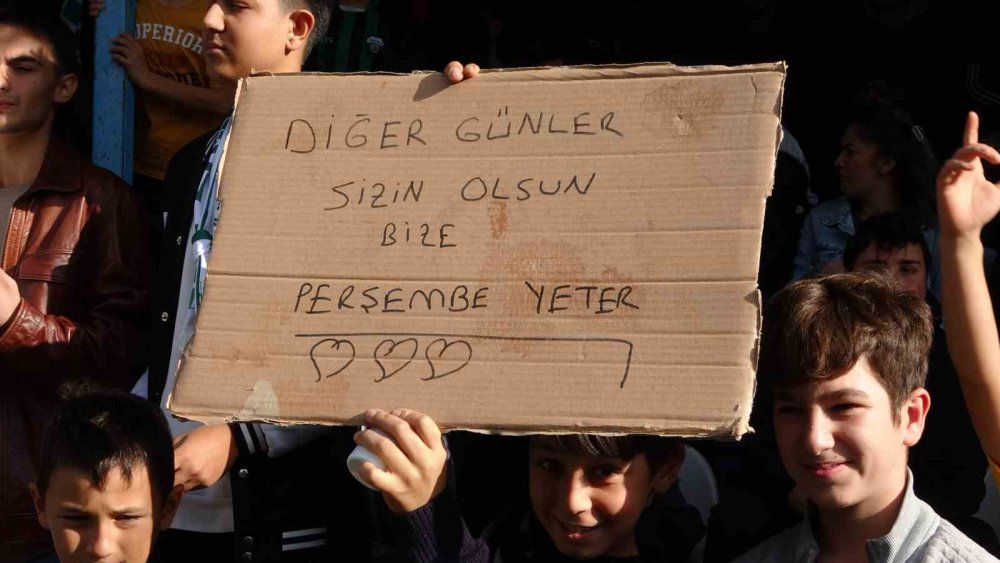 PERIOR
DİĞER GÜNLER
SİZİN OLSUN
BİZE
PERŞEMBE YETER